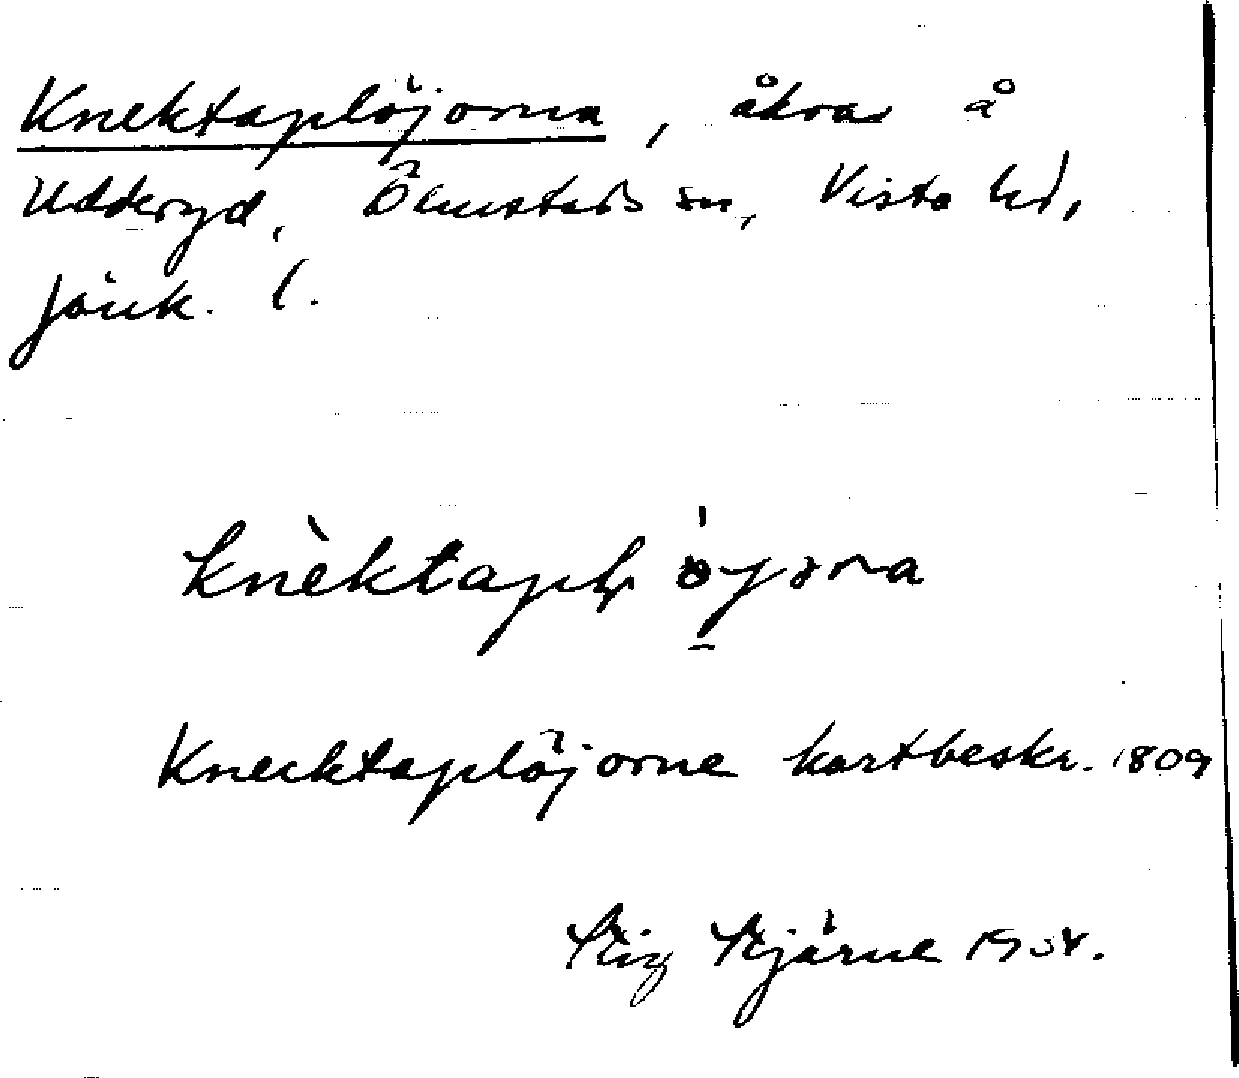 Knektaplöjorna, åkrar å
Udderyd, Ölmstads sn, Vista hd,
Jönk. l.
knèktapl öjora
Knecktaplöjorne kartbeskr. 1809
Stig Stjärne